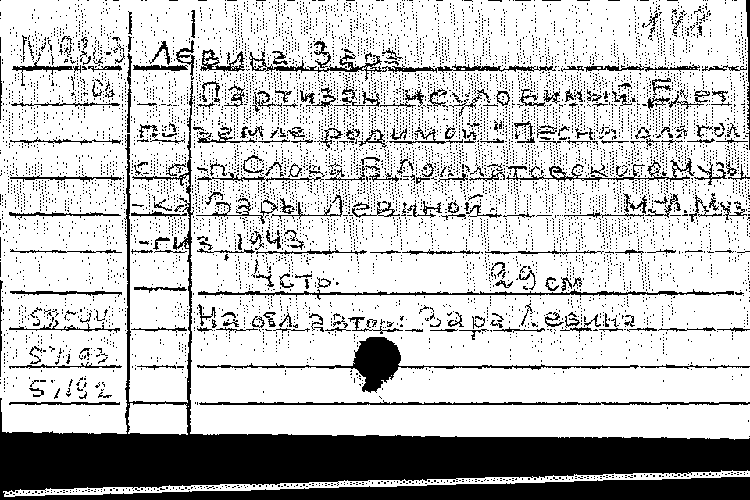 188
М98.-3 Левина, Зара
Партизан неуловимый. Едет
по земле родимой". Песня для гол.
с ф-п. Слова Е. Долматовского. Музы
-ка Зары Левиной. М.-Л. Муз
-гиз, 1943.
4 стр. 29 см
58544 На обл. автор: Зара Левина
57193
57192